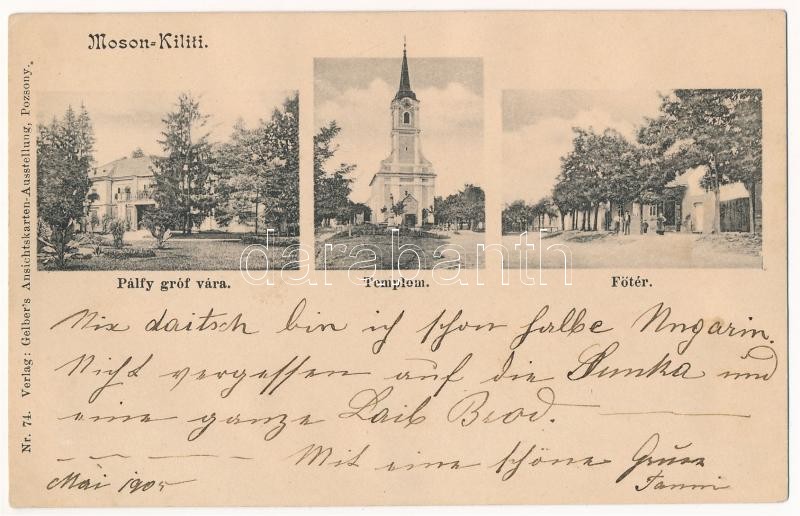 Moson-Kiliti.
Pálfy gróf vára.
Templom.
Főtér.
Nr. 74. Verlag: Gelber's Ansichtskarten-Ausstellung, Pozsony.
darabanth
Nix daitsch bin ich schon halbe Ungarin.
Nicht vergessen auf die Sunka und
eine ganze Laib Brod.
Mit eine schöne Gruss
Mai 1905